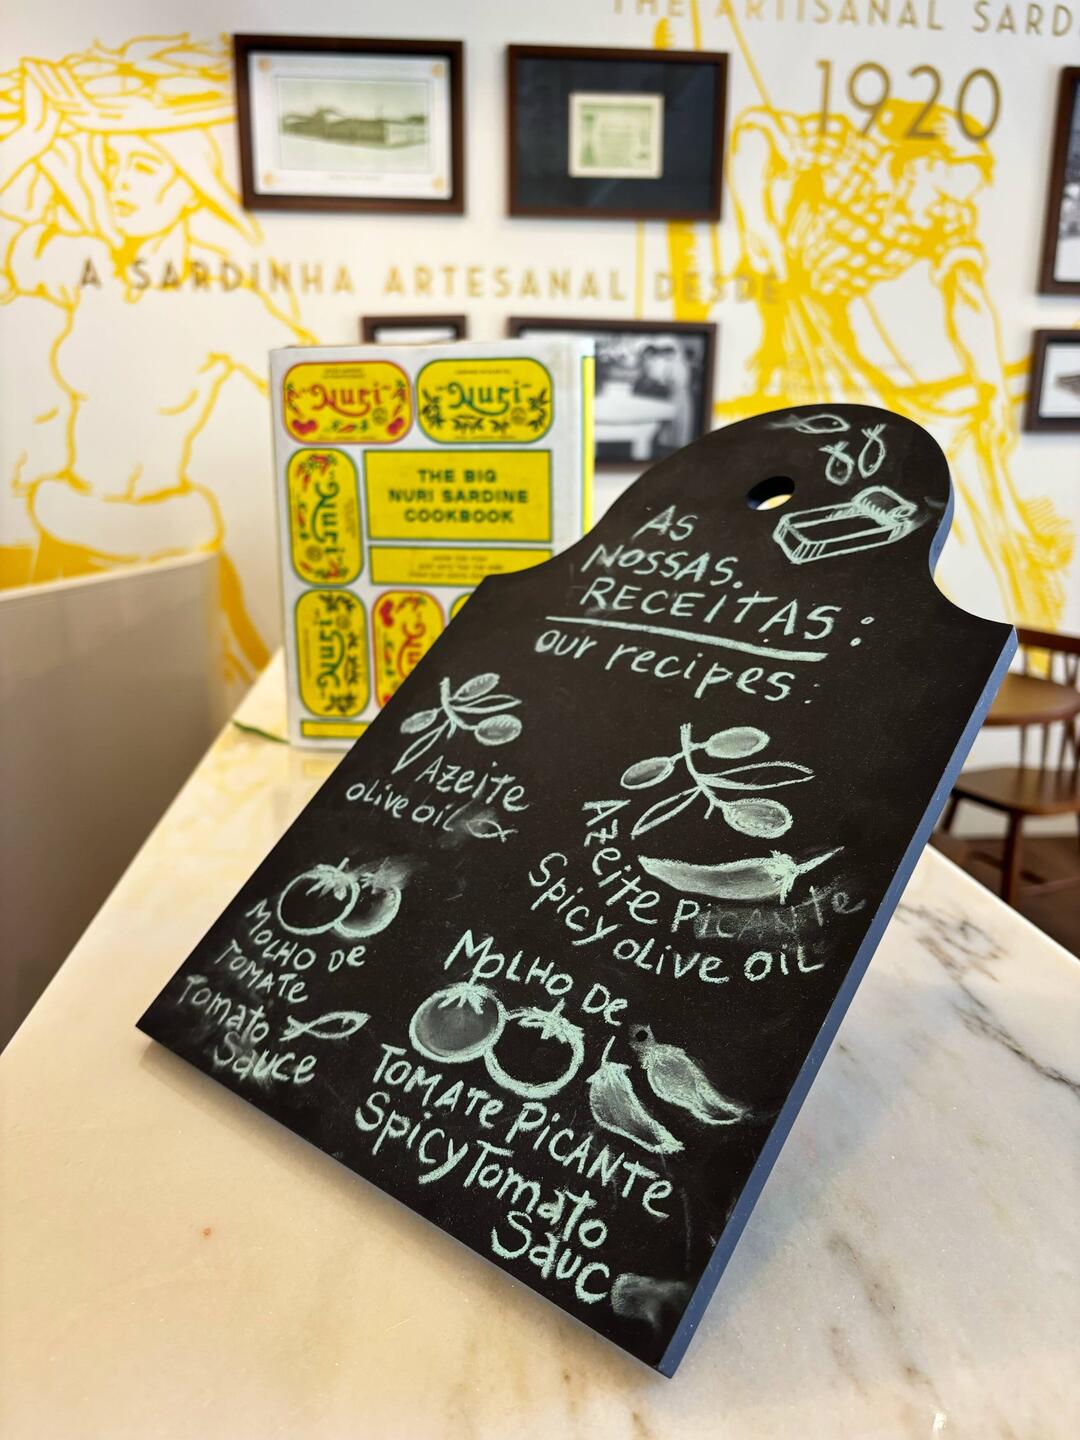 THE ARTISANAL SARD
1920
A SARDINHA ARTESANAL DESDE
Nuri
Nuri
Nuri
THE BIG
NURI SARDINE
COOKBOOK
Nuri
AS
NOSSAS.
RECEITAS:
our recipes:
Azeite
olive oil
Azeite PICANTe
Spicy olive oil
MOLHO De
TOMATe
Tomato
Sauce
MOLHO De
TOMATe PiCANTe
Spicy Tomato
Sauc